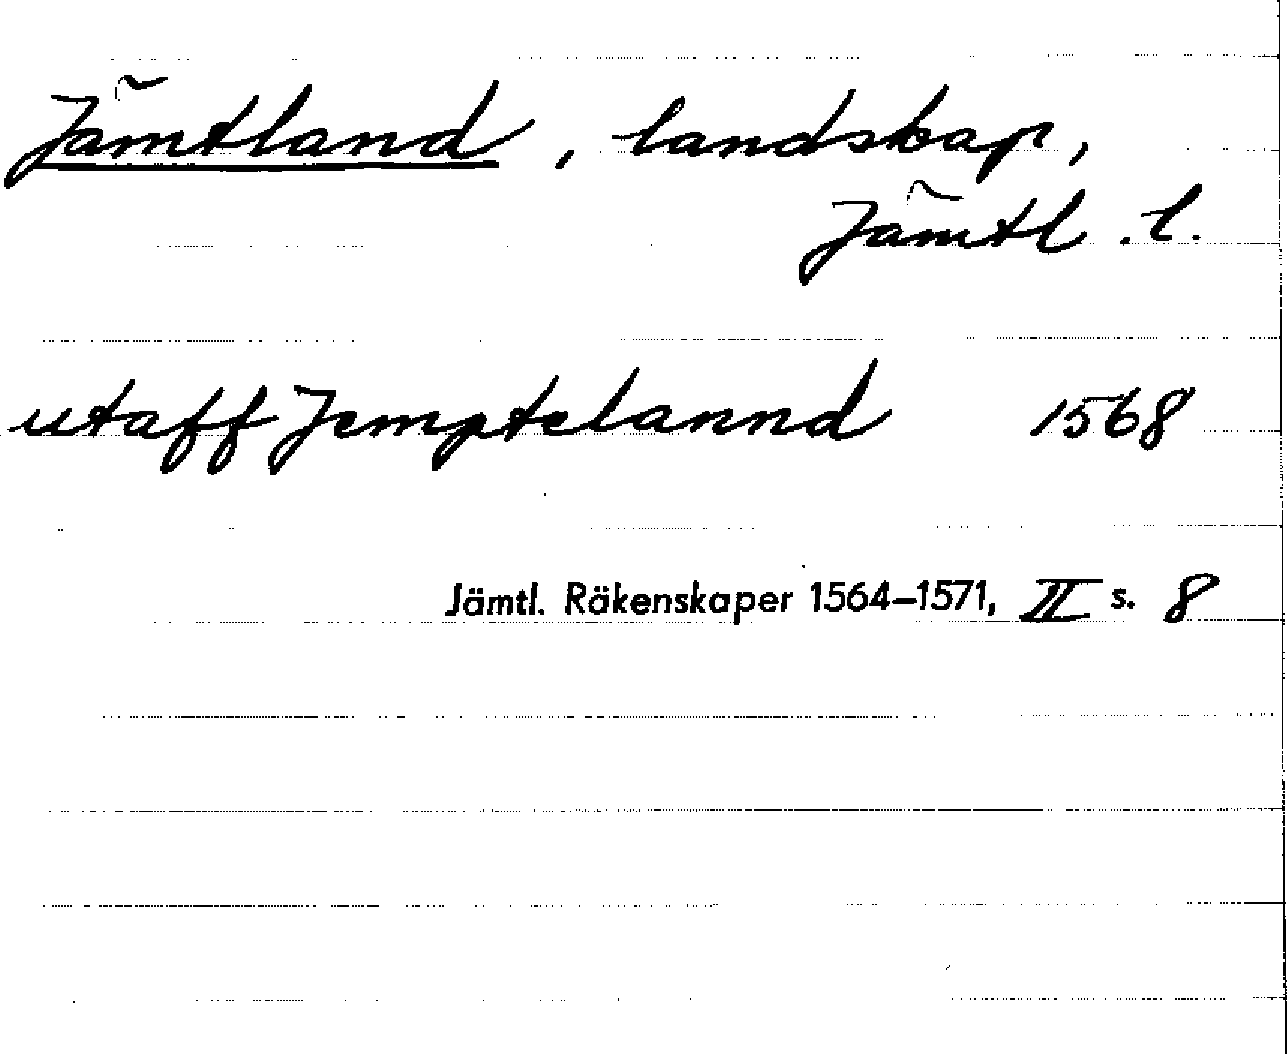 Jämtland, landskap,
Jämtl. l.
utaff Jemptelannd 1568
Jämtl. Räkenskaper 1564–1571, II s. 8